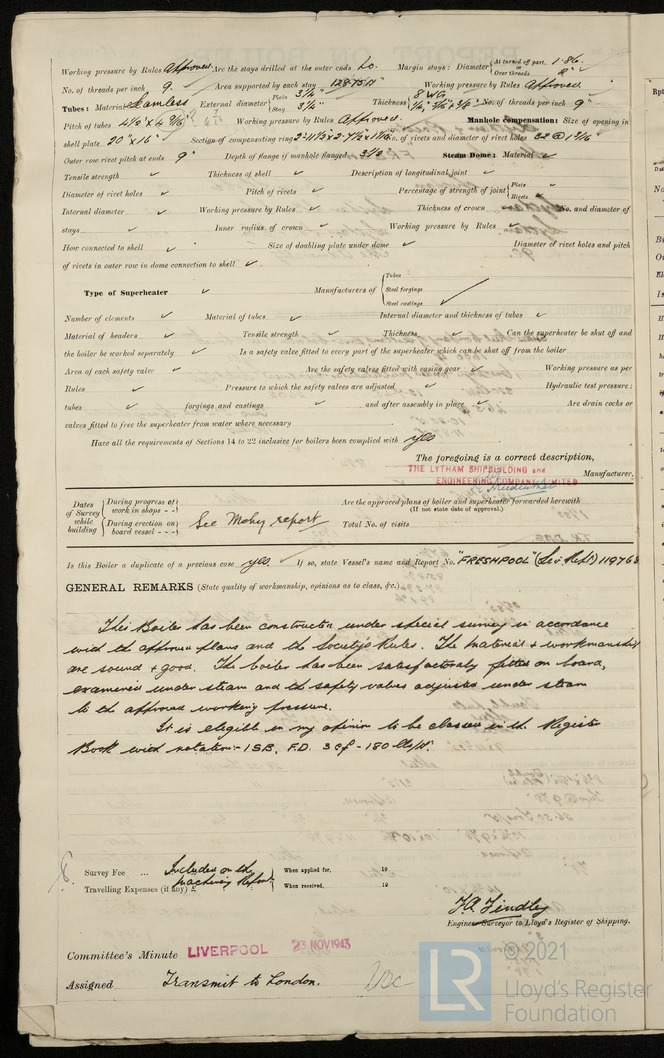 Working pressure by Rules Approved. Are the stays drilled at the outer ends No. Margin stays: Diameter { At turned off part, 1·86 or Over threads 2"
No. of threads per inch 9. Area supported by each stay Working pressure by Rules Approved.
Tubes: Material Seamless External diameter { Plain 3¼" Stay 3¼" Thickness { 8 WG No. of threads per inch 9"
Pitch of tubes Working pressure by Rules Approved. Manhole compensation: Size of opening in
shell plate 20" x 16" Section of compensating ring No. of rivets and diameter of rivet holes
Outer row rivet pitch at ends 9" Depth of flange if manhole flanged 3½" Steam Dome: Material ✓
Tensile strength ✓ Thickness of shell ✓ Description of longitudinal joint ✓
Diameter of rivet holes ✓ Pitch of rivets ✓ Percentage of strength of joint { Plate ✓ Rivets ✓
Internal diameter ✓ Working pressure by Rules ✓ Thickness of crown ✓ No. and diameter of
stays ✓ Inner radius of crown ✓ Working pressure by Rules ✓
How connected to shell ✓ Size of doubling plate under dome ✓ Diameter of rivet holes and pitch
of rivets in outer row in dome connection to shell ✓
Type of Superheater ✓ Manufacturers of { Tubes Steel forgings Steel castings ✓
Number of elements ✓ Material of tubes ✓ Internal diameter and thickness of tubes ✓
Material of headers ✓ Tensile strength ✓ Thickness ✓ Can the superheater be shut off and
the boiler be worked separately ✓ Is a safety valve fitted to every part of the superheater which can be shut off from the boiler
Area of each safety valve ✓ Are the safety valves fitted with easing gear ✓ Working pressure as per
Rules ✓ Pressure to which the safety valves are adjusted ✓ Hydraulic test pressure:
tubes ✓ forgings and castings ✓ and after assembly in place ✓ Are drain cocks or
valves fitted to free the superheater from water where necessary
Have all the requirements of Sections 14 to 22 inclusive for boilers been complied with yes
The foregoing is a correct description,
THE LYTHAM SHIPBUILDING and
ENGINEERING COMPANY LIMITED Manufacturer.
Dates of Survey while building { During progress of work in shops - - } { During erection on board vessel - - - } See Mchy report
Are the approved plans of boiler and superheater forwarded herewith
(If not state date of approval.)
Total No. of visits
Is this Boiler a duplicate of a previous case yes. If so, state Vessel's name and Report No. "FRESHPOOL" (Liv. Rpt)
GENERAL REMARKS (State quality of workmanship, opinions as to class, &c.)
This Boiler has been constructed under special survey in accordance
with the approved plans and the Society's Rules. The material & workmanship
are sound & good. The boiler has been satisfactorily fitted on board,
examined under steam and the safety valves adjusted under steam
to the approved working pressure.
It is eligible in my opinion to be classed in the Register
Book with notation:- 1SB. F.D. 3cf - 180 lbs/□".
Survey Fee ... Included on the When applied for, 19
Travelling Expenses (if any) £ Machinery Report. When received, 19
J.A. Findley
Engineer Surveyor to Lloyd's Register of Shipping.
Committee's Minute LIVERPOOL 23 NOV 1943
Assigned Transmit to London.
LR © 2021
Lloyd's Register
Foundation